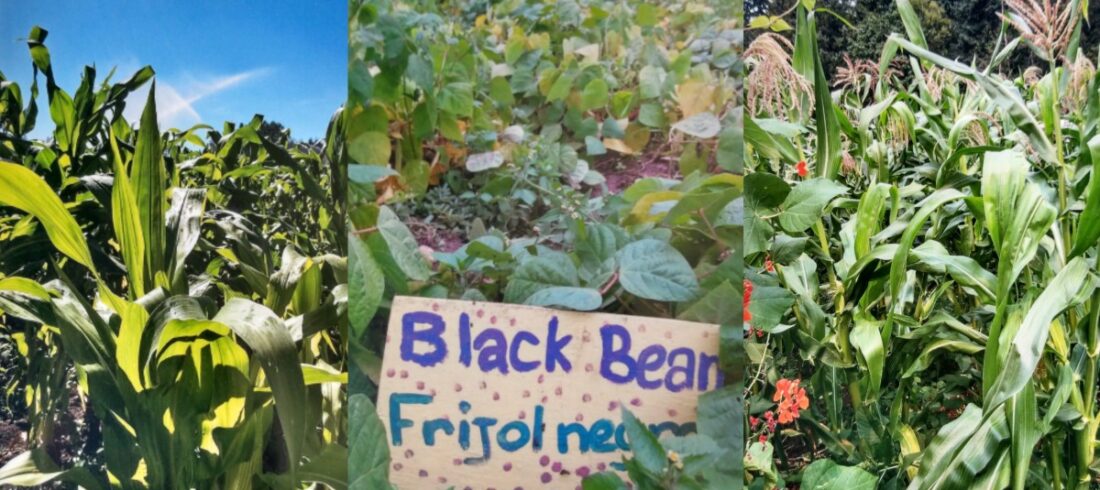 Black Bean
Frijol negro